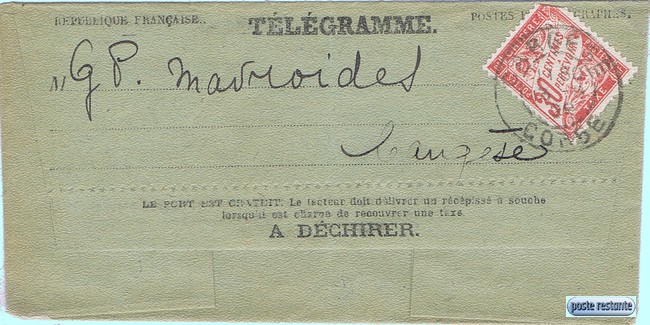 RÉPUBLIQUE FRANÇAISE.
TÉLÉGRAMME.
POSTES
GRAPHES.
G P. Mavroides
Cargèse
LE PORT EST GRATUIT. Le facteur doit délivrer un récépissé à souche
lorsqu'il est chargé de recouvrer une taxe.
A DÉCHIRER.
30
CENTIMES
A PERCEVOIR
CORSE
poste restante